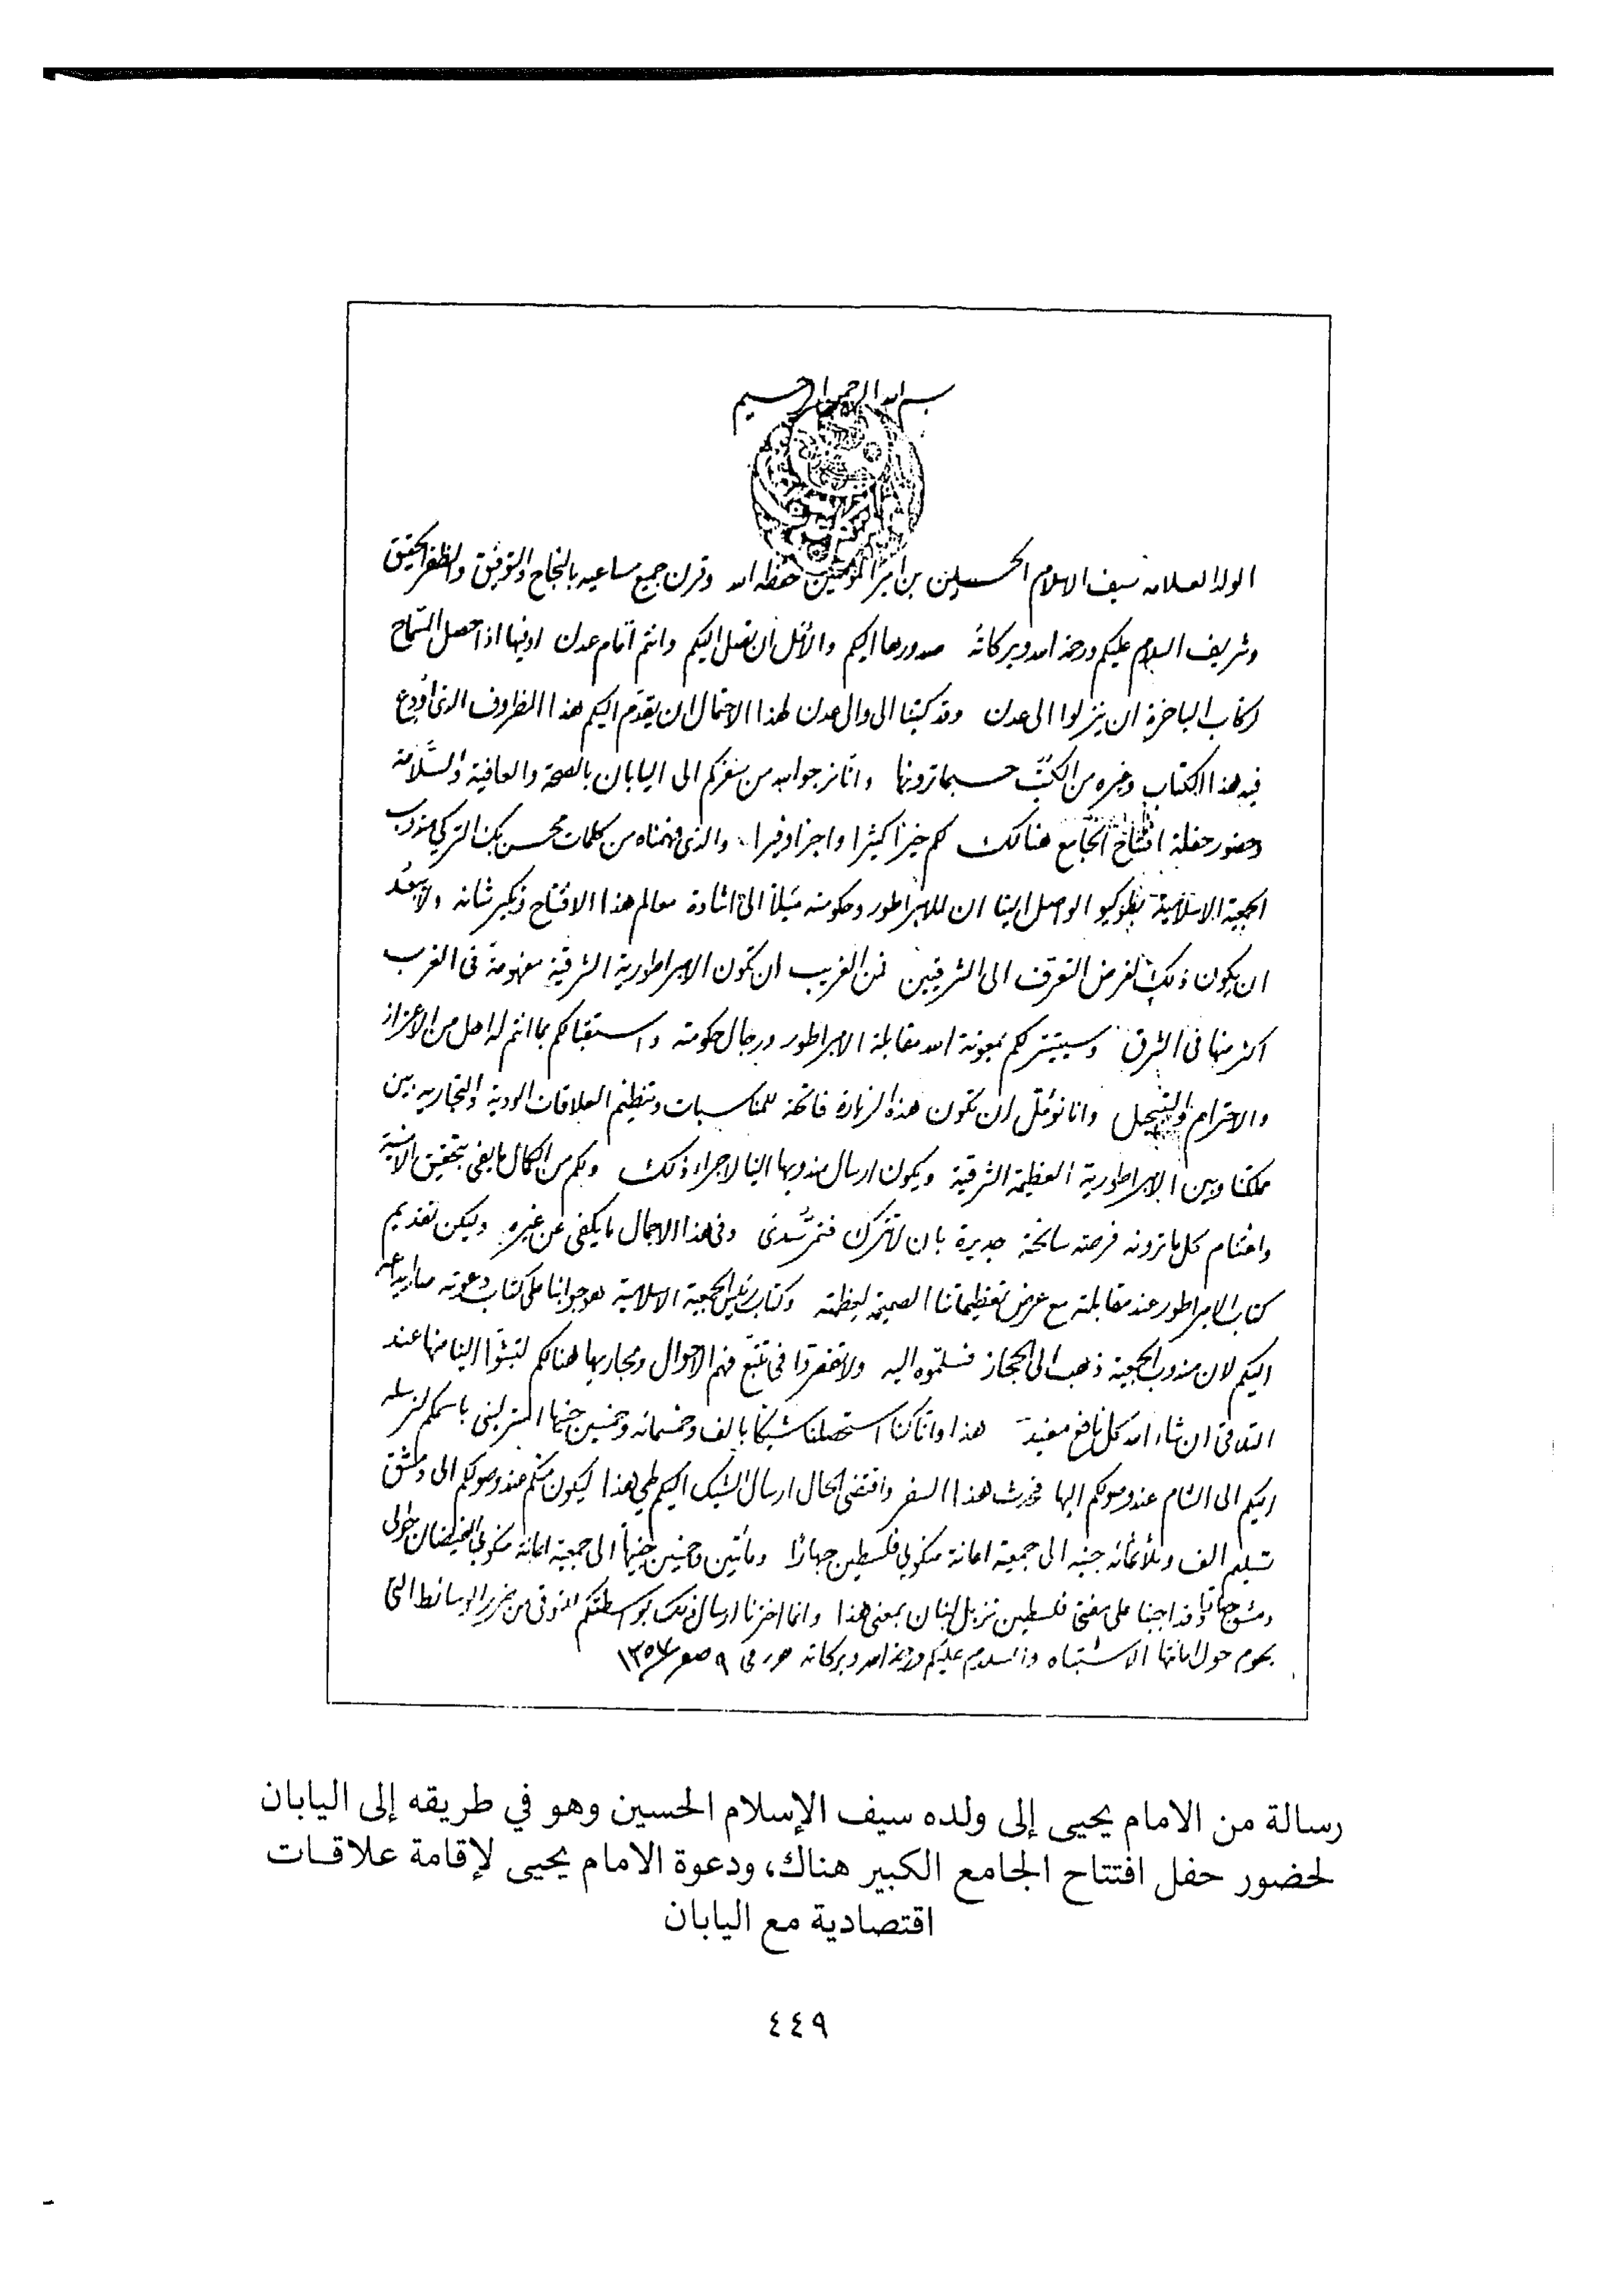 بسم الله الرحمن الرحيم
الولد العلامه سيف الاسلام الحسين بن امير المؤمنين حفظه الله وقرن جميع مساعيه بالنجاح والتوفيق والظفر الحقيق
وشريف السلام عليكم ورحمة الله وبركاته صدورها اليكم والأمل ان تصل اليكم وانتم أمام عدن اوفيها اذا حصل السماح
لركاب الباخرة ان ينزلوا الى عدن وقد كتبنا الى والى عدن لهذا الاحتمال ان يقدّم اليكم هذا الظروف الذى أودع
فيه هذا الكتاب وغيره من الكتب حسبما ترونها وانا نرجو الله من سفركم الى اليابان بالصحة والعافية والسّلامة
وحضور حفلة افتتاح الجامع هنالك لكم خيرا كثيرا واجرا وفيرا والذى فهمناه من كلمات محسن بك التركي مندوب
الجمعية الاسلامية بطوكيو الواصل الينا ان للامبراطور وحكومته ميلاً الى اشادة معالم هذا الافتتاح وتكبير شانه ولا يبعُد
ان يكون ذلك لغرض التعرف الى الشرقيين فمن الغريب ان تكون الامبراطورية الشرقية مفهومة فى الغرب
اكثر منها فى الشرق وسيتيسر لكم بمعونة الله مقابلة الامبراطور ورجال حكومته واستقبالكم بما انتم له اهل من الاعزاز
والاحترام والتبجيل وانا نؤمّل ان تكون هذه الزيارة فاتحة للمناسبات وتنظيم العلاقات الودية والتجاريه بين
مملكتنا وبين الامبراطورية العظيمة الشرقية ويكون ارسال مندوبها الينا لاجراء ذلك ولكم من الكمال ما يفى بتحقيق الامنية
واغتنام كل ما ترونه فرصته سانحة جديرة بان لا تترك فتمرّ سُدى وفى هذا الاجمال ما يكفى عن غيره وليكن تقديم
كتاب الامبراطور عند مقابلته مع عرض تعظيماتنا الصميمية لعظمته وكتاب رئيس الجمعية الاسلامية هو جوابنا على كتاب دعوته
اليكم لان مندوب الجمعية ذهب الى الحجاز فسلّموه اليه ولا تقصّروا فى تتبّع فهم الاحوال ومجاريها هنالكم لتبثوا الينا منها عند
التلاقى ان شاء الله كل نافع مفيد هذا وانا كنا استحصلنا شيكًا بالف وخمسمائه وخمسين جنيها استرلينى باسمكم لنرسله
اليكم الى الشام عند وصولكم اليها فحدث هذا السفر واقتضى الحال ارسال الشيك اليكم طي هذا ليكون منكم عند وصولكم الى دمشق
تسليم الف وثلاثمائه جنيه الى جمعية اعانة منكوبي فلسطين جهارًا ومأتين وخمسين جنيهاً الى جمعية اعانة منكوبي الفيضان حوالى
دمشق جهارًا وقد اجبنا على مفتى فلسطين نزيل لبنان بمعنى هذا وانما اخترنا ارسال ذلك بواسطتكم للتوقى من الوسائط التى
يحوم حول امانتها الاشتباه والسلام عليكم ورحمة الله وبركاته حرر فى ٩ صفر ١٣٥٧
رسالة من الامام يحيى إلى ولده سيف الإسلام الحسين وهو في طريقه إلى اليابان
لحضور حفل افتتاح الجامع الكبير هناك، ودعوة الامام يحيى لإقامة علاقات
اقتصادية مع اليابان
٤٤٩